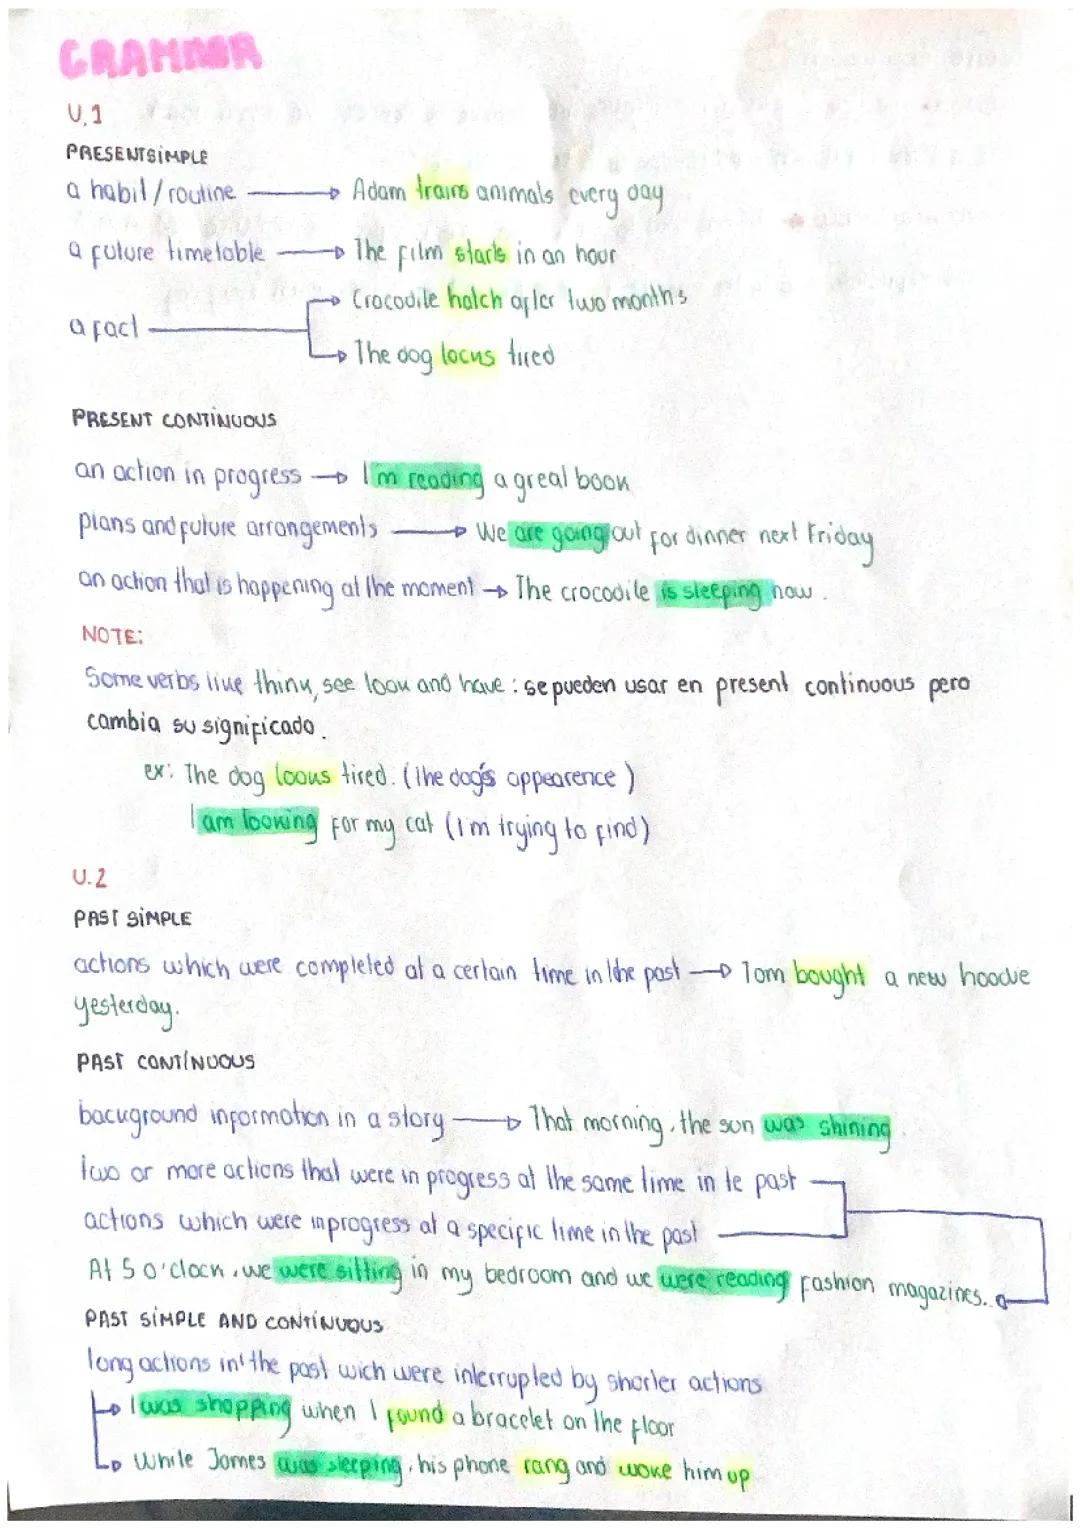 GRAMMAR
U.1
PRESENT SIMPLE
a habit/routine → Adam trains animals every day
a future timetable → The film starts in an hour
→ Crocodile hatch after two months
a fact
→ The dog looks tired
PRESENT CONTINUOUS
an action in progress → I'm reading a great book
plans and future arrangements → We are going out for dinner next Friday
an action that is happening at the moment → The crocodile is sleeping now.
NOTE:
Some verbs like think, see look and have: se pueden usar en present continuous pero
cambia su significado.
ex: The dog looks tired. (the dog's appearence)
I am looking for my cat (I'm trying to find)
U.2
PAST SIMPLE
actions which were completed at a certain time in the past → Tom bought a new hoodie
yesterday.
PAST CONTÍNUOUS
background information in a story → That morning, the sun was shining.
two or more actions that were in progress at the same time in te past
actions which were in progress at a specific time in the past
At 5 o'clock, we were sitting in my bedroom and we were reading fashion magazines.
PAST SIMPLE AND CONTINUOUS
long actions in the past wich were interrupted by shorter actions
→ I was shopping when I found a bracelet on the floor
→ While James was sleeping, his phone rang and woke him up